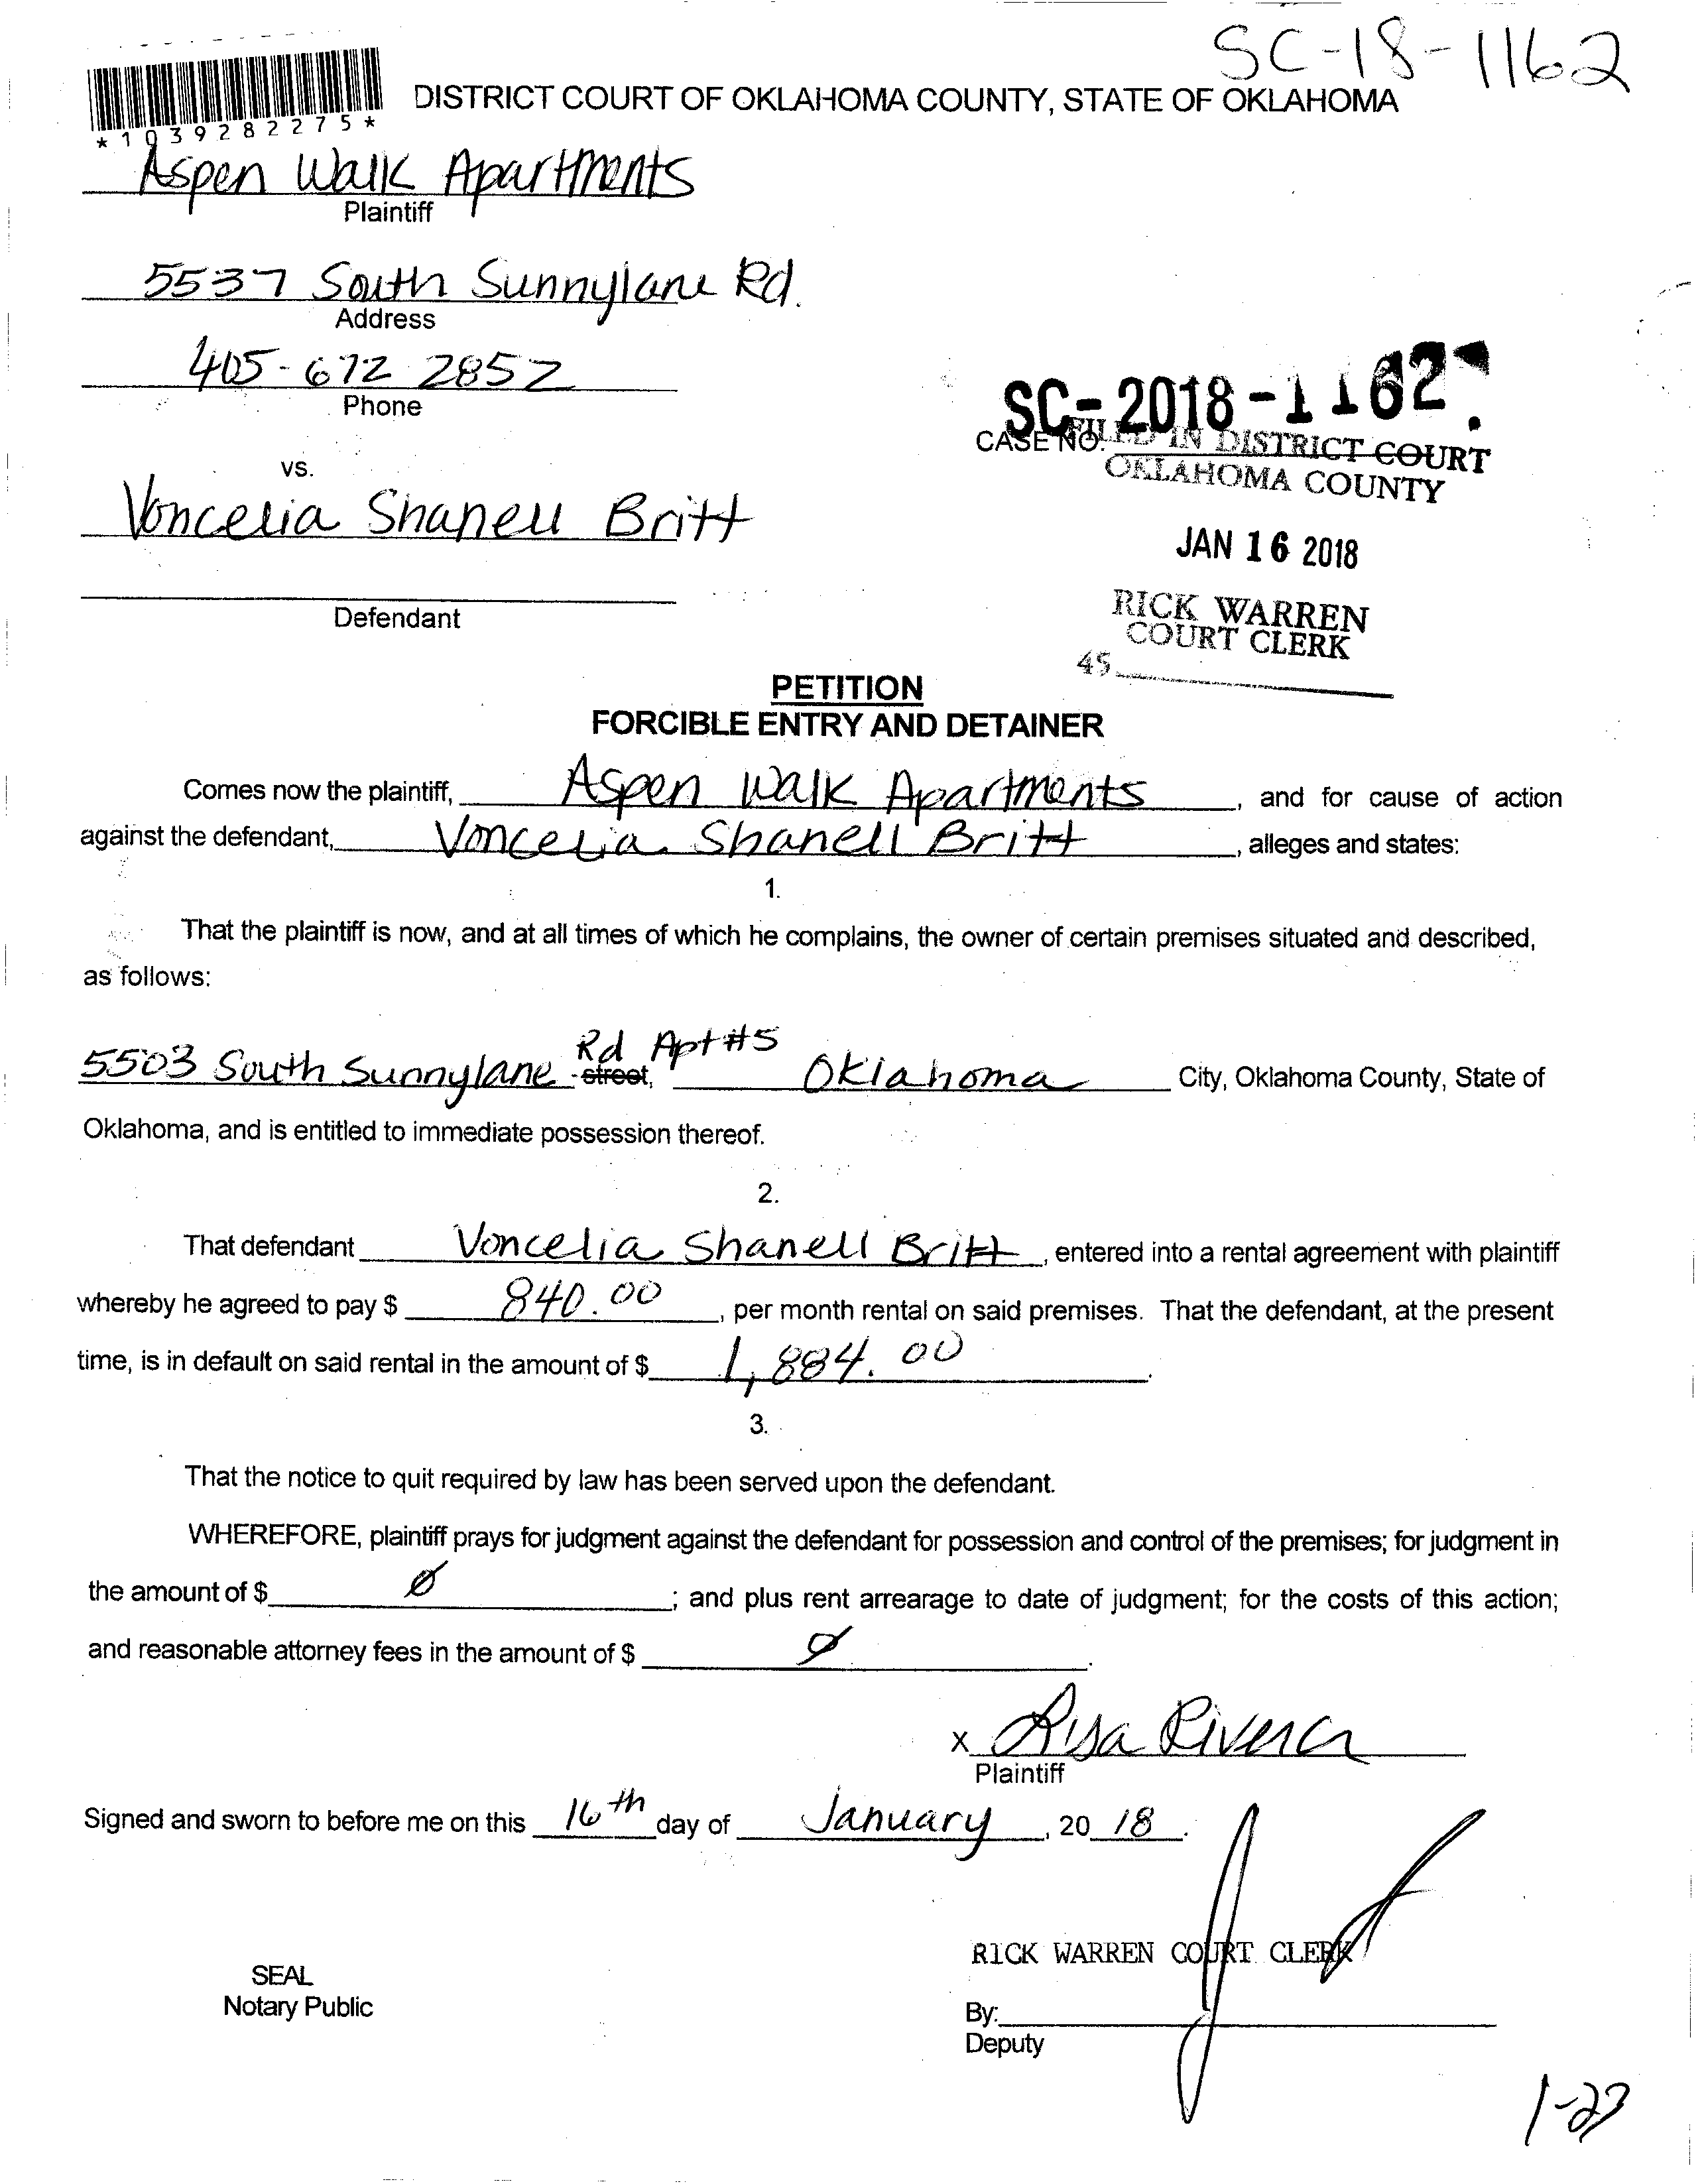 SC-18-1162
*1039282275*
DISTRICT COURT OF OKLAHOMA COUNTY, STATE OF OKLAHOMA
Aspen Walk Apartments
Plaintiff
5537 South Sunnylane Rd.
Address
405-672 2852
Phone
SC-2018-1162
CASE NO.
FILED IN DISTRICT COURT
OKLAHOMA COUNTY
vs.
Voncelia Shanell Britt
JAN 16 2018
Defendant
RICK WARREN
COURT CLERK
45
PETITION
FORCIBLE ENTRY AND DETAINER
Comes now the plaintiff, Aspen Walk Apartments, and for cause of action
against the defendant, Voncelia Shanell Britt, alleges and states:
1.
That the plaintiff is now, and at all times of which he complains, the owner of certain premises situated and described,
as follows:
5503 South Sunnylane street, Rd Apt #5 Oklahoma City, Oklahoma County, State of
Oklahoma, and is entitled to immediate possession thereof.
2.
That defendant Voncelia Shanell Britt, entered into a rental agreement with plaintiff
whereby he agreed to pay $ 840.00, per month rental on said premises. That the defendant, at the present
time, is in default on said rental in the amount of $ 1,884.00.
3.
That the notice to quit required by law has been served upon the defendant.
WHEREFORE, plaintiff prays for judgment against the defendant for possession and control of the premises; for judgment in
the amount of $ Ø; and plus rent arrearage to date of judgment; for the costs of this action;
and reasonable attorney fees in the amount of $ Ø.
x Risa Rivera
Plaintiff
Signed and sworn to before me on this 16th day of January, 20 18.
RICK WARREN COURT CLERK
SEAL
Notary Public
By:
Deputy
1-23